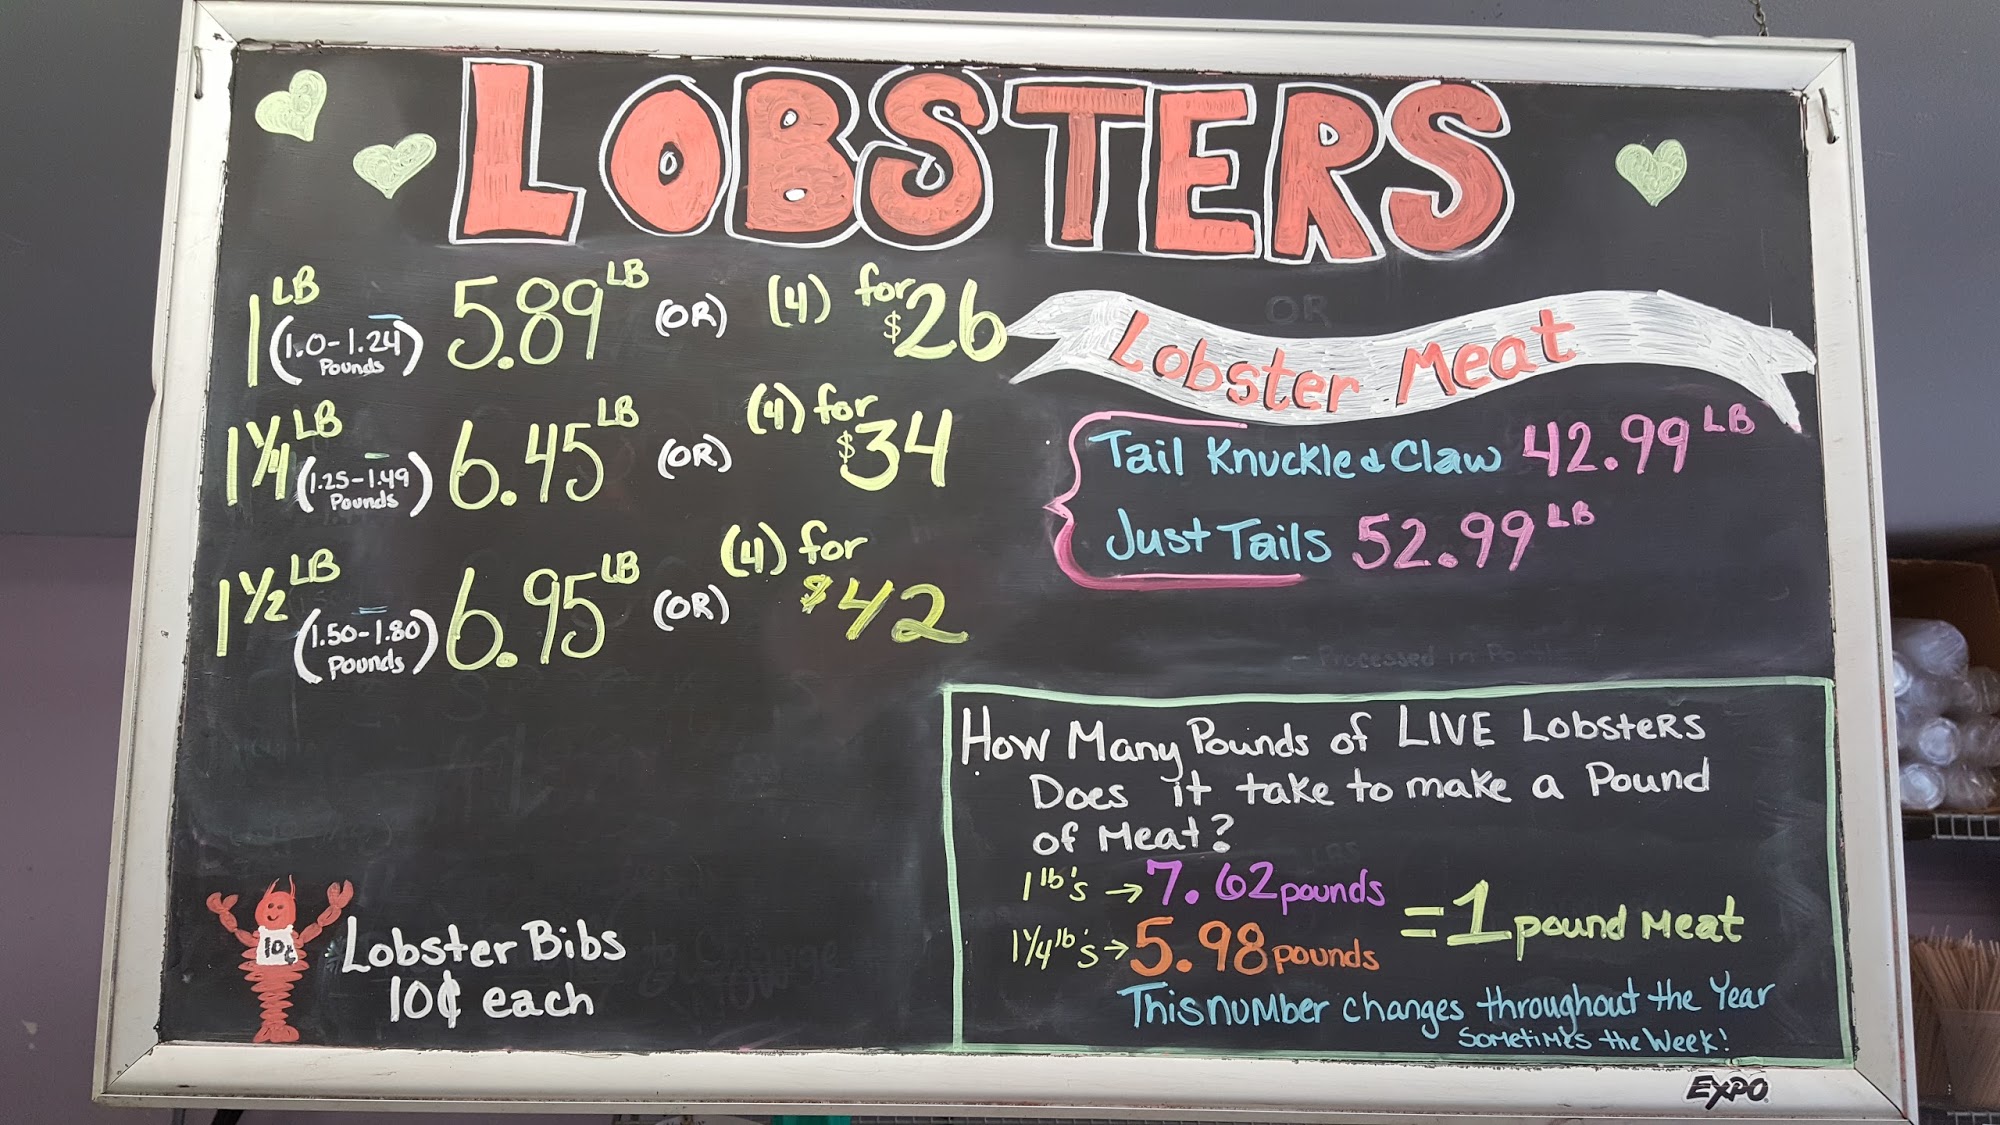 LOBSTERS
1 LB (1.0-1.24 Pounds) 5.89 LB (OR) (4) for $26
1 1/4 LB (1.25-1.49 Pounds) 6.45 LB (OR) (4) for $34
1 1/2 LB (1.50-1.80 Pounds) 6.95 LB (OR) (4) for $42
OR
Lobster Meat
Tail Knuckle & Claw 42.99 LB
Just Tails 52.99 LB
- Processed in
How Many Pounds of LIVE Lobsters
Does it take to make a Pound
of Meat?
1 lb's → 7.62 pounds
1 1/4 lb's → 5.98 pounds
= 1 pound Meat
This number changes throughout the Year
Sometimes the Week!
10¢
Lobster Bibs
10¢ each
EXPO